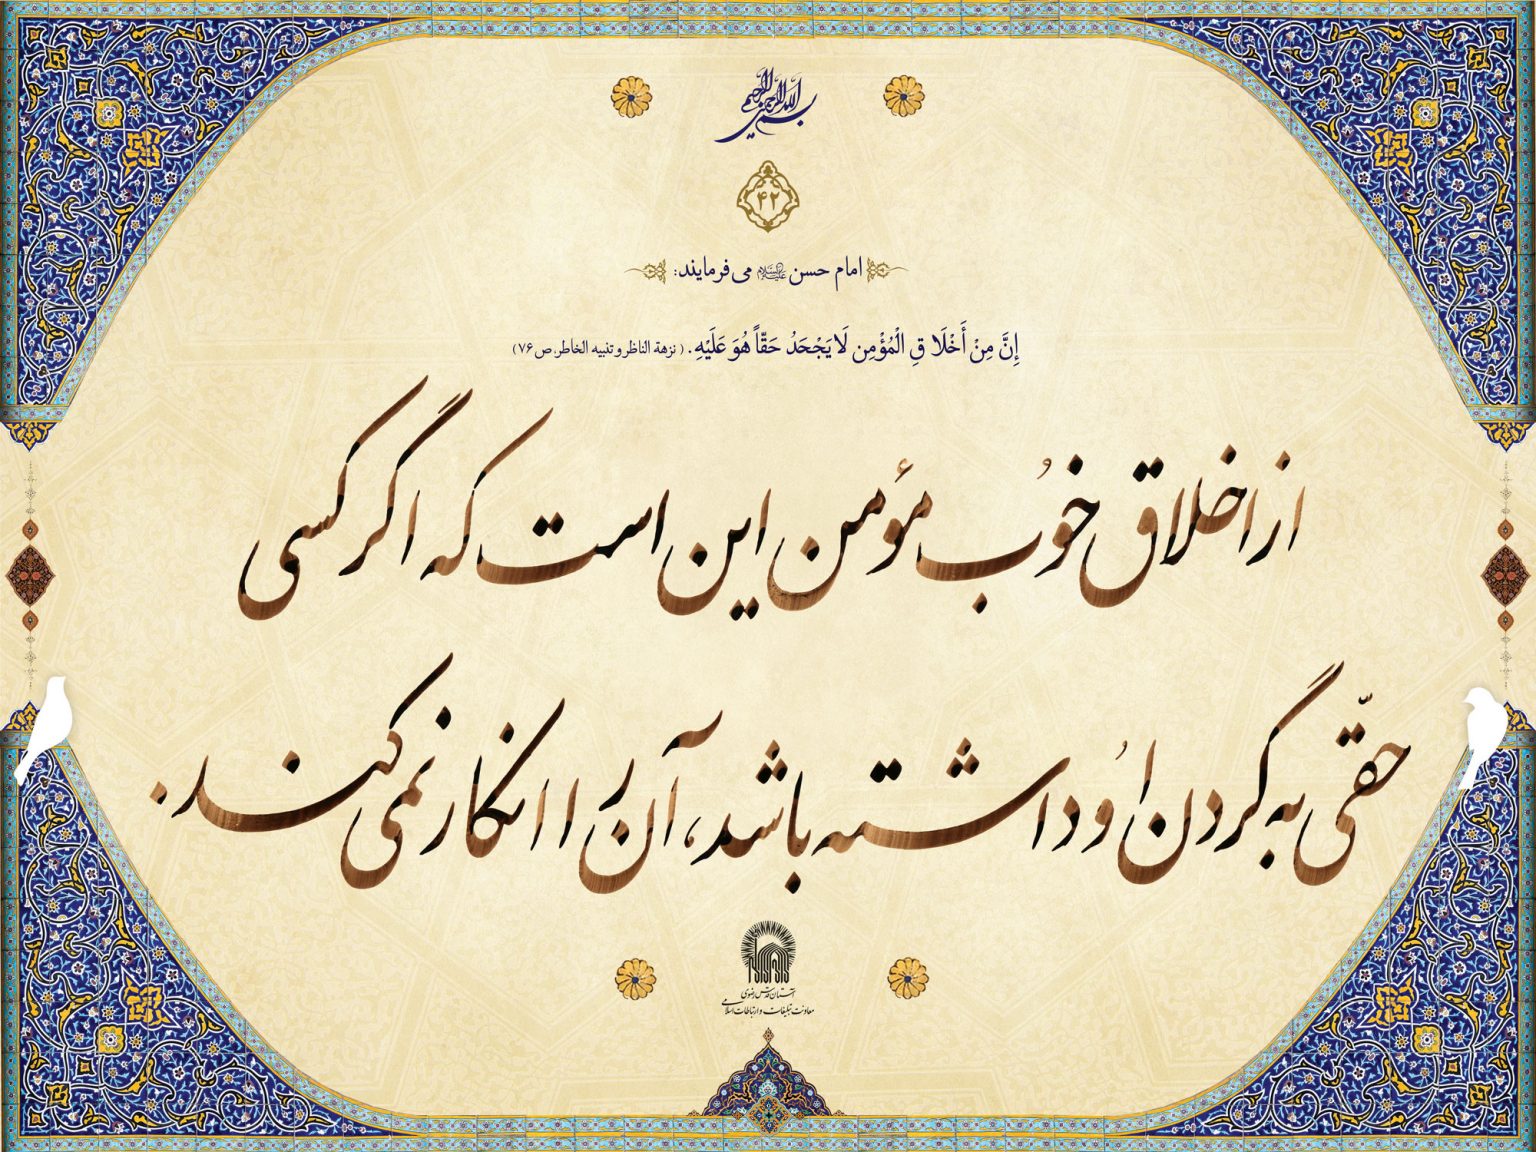 بسم الله الرحمن الرحیم
۴۲
امام حسن علیه‌السلام می‌فرمایند:
إِنَّ مِنْ أَخْلَاقِ الْمُؤْمِنِ لَا يَجْحَدُ حَقّاً هُوَ عَلَيْهِ. (نزهة الناظر و تنبیه الخاطر، ص ۷۶)
از اخلاق خوُب مؤمن این است که اگر کسی
حقّی به گردن اوُ داشته باشد، آن را انکار نمی‌کند.
آستان قدس رضوی
معاونت تبلیغات و ارتباطات اسلامی